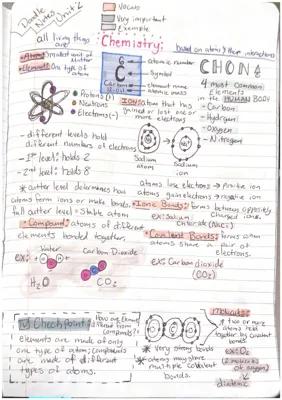 Doodle Notes
Unit 2
Vocab
Very important
Example
all living things are
Chemistry:
based on atoms & their interactions
Atom: Smallest unit of matter
Element: One type of atom
6
C
Carbon
12.011
atomic number
Symbol
element name
atomic mass
CHON
4 most common
Elements
in the HUMAN BODY
- Carbon
- Hydrogen
- Oxygen
- Nitrogent
Protons (+)
Neutrons
Electrons (-)
ION: atom that has
gained or lost one or
more electrons
- different levels hold
different numbers of electrons
- 1st level: holds 2
- 2nd level: holds 8
Sodium atom
Sodium ion
* outter level determines how
atoms form ions or make bonds.
full outter level = stable atom
atoms lose electrons → positive ion
atoms gain electrons → negative ion
• Ionic Bonds: forms between oppositely
charged ions.
ex: Sodium Chloride (NaCl)
• Compound: atoms of different
elements bonded together.
• Covalent Bonds: forms when
atoms share a pair of
electrons.
ex: Carbon dioxide
(CO2)
ex:
Water
H2O
Carbon Dioxide
CO2
Check Point:
How are Elements
different from
Compounds?
elements are made of only
one type of atom; compounds
are made of different
types of atoms.
* Very strong bonds
* atoms may share
multiple covalent
bonds.
molecule:
two or more
atoms held
together by covalent
bonds
ex: O2
(2 molecules
of oxygen)
diatomic